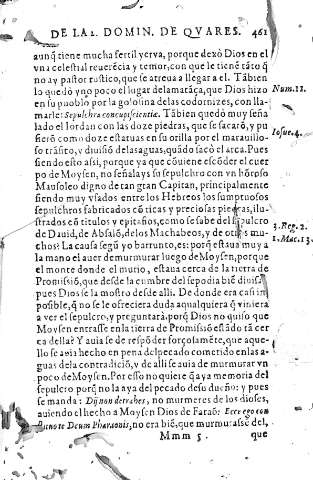 DE LA 2. DOMIN. DE QVARES. 461
aunq̃ tiene mucha fertil yerva, porque dexò Dios en el
vna celestial reuerẽcia y temor, con que le tienẽ tãto q̃
no ay pastor rustico, que se atreua a llegar a el. Tãbien
lo quedò vn poco el lugar dela matãça, que Dios hizo
en su pueblo por la golosina de las codornizes, con lla-
marle: Sepulchra concupiscentiæ. Tãbien quedò muy seña
lado el Iordan con las doze piedras, que se sacarõ, y pu
sierõ como doze estatuas en su orilla por el marauillo-
so trãsito, y diuisiõ delas aguas, quãdo sacò el arca. Pues
siendo esto assi, porque ya que cõuiene escõder el cuer
po de Moysen, no señalays su sepulchro con vn hõroso
Mausoleo digno de tan gran Capitan, principalmente
siendo muy vsados entre los Hebreos los sumptuosos
sepulchros fabricados cõ ricas y preciosas piedras, ilu-
strados cõ titulos y epitafios, como se sabe del sepulcro
de Dauid, de Absalõ, de los Machabeos, y de otros mu-
chos? La causa segũ yo barrunto, es: porq̃ estaua muy a
la mano el auer de murmurar luego de Moysen, porque
el monte donde el murio, estaua cerca de la tierra de
Promissiõ, que desde la cumbre del se podia biẽ diuisar,
pues Dios se la mostro desde alli. De donde era casi im
possible, q̃ no se le ofreciera duda a qualquiera q̃ viniera
a ver el sepulcro, y preguntàra: porq̃ Dios no quiso que
Moysen entrasse en la tierra de Promissiõ estãdo tã cer
ca della? Y auia se de respõder forçosamẽte, que aque-
llo se auia hecho en pena del pecado cometido en las a-
guas de la contradiciõ, y de alli se auia de murmurar vn
poco de Moysen. Por esso no quiere q̃ aya memoria del
sepulcro porq̃ no la aya del pecado de su dueño: y pues
se manda: Dijs non detrahes, no murmeres de los dioses,
auiendo el hecho a Moysen Dios de Faraõ: Ecce ego con
stituo te Deum Pharaonis, no era biẽ, que murmurasse del,
Mmm 5 que
Num. 11.
Iosue. 4.
3. Reg. 2.
1. Mac. 13.